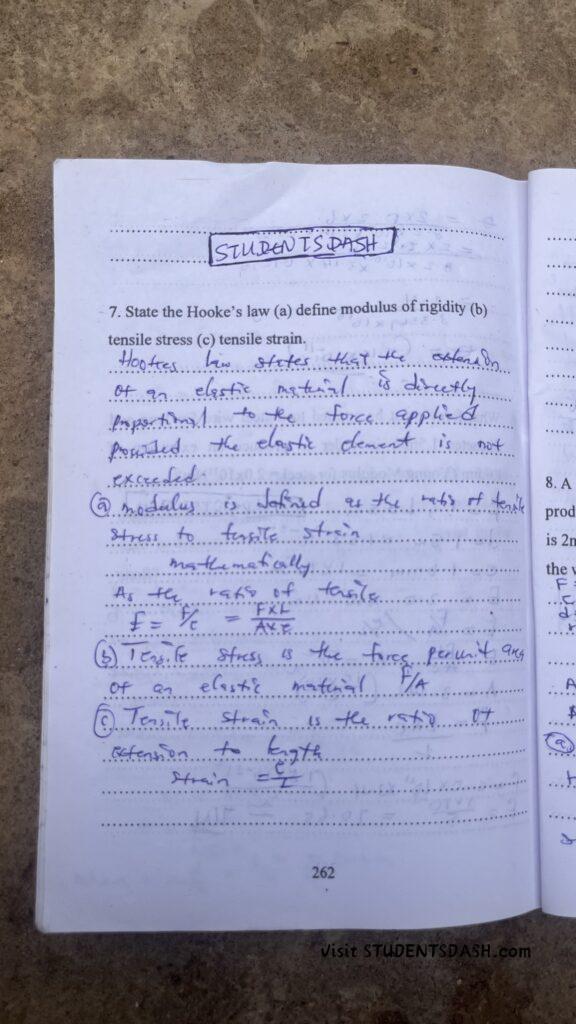 STUDENTSDASH
7. State the Hooke's law (a) define modulus of rigidity (b)
tensile stress (c) tensile strain.
Hookes law states that the extension
of an elastic material is directly
proportional to the force applied
provided the elastic element is not
exceeded.
(a) modulus is defined as the ratio of tensile
stress to tensile strain
mathematically
As the ratio of tensile
E = F/e = FXL/AXE
(b) Tensile stress is the force per unit area
of an elastic material F/A
(c) Tensile strain is the ratio of
extension to length
strain = e/L
262
8. A
prod
is 2m
the v
Visit STUDENTSDASH.com